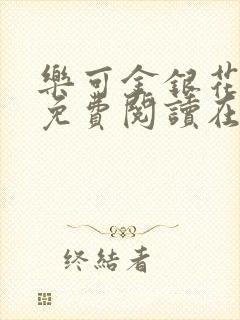 樂可金銀花
免費閱讀在
終結者